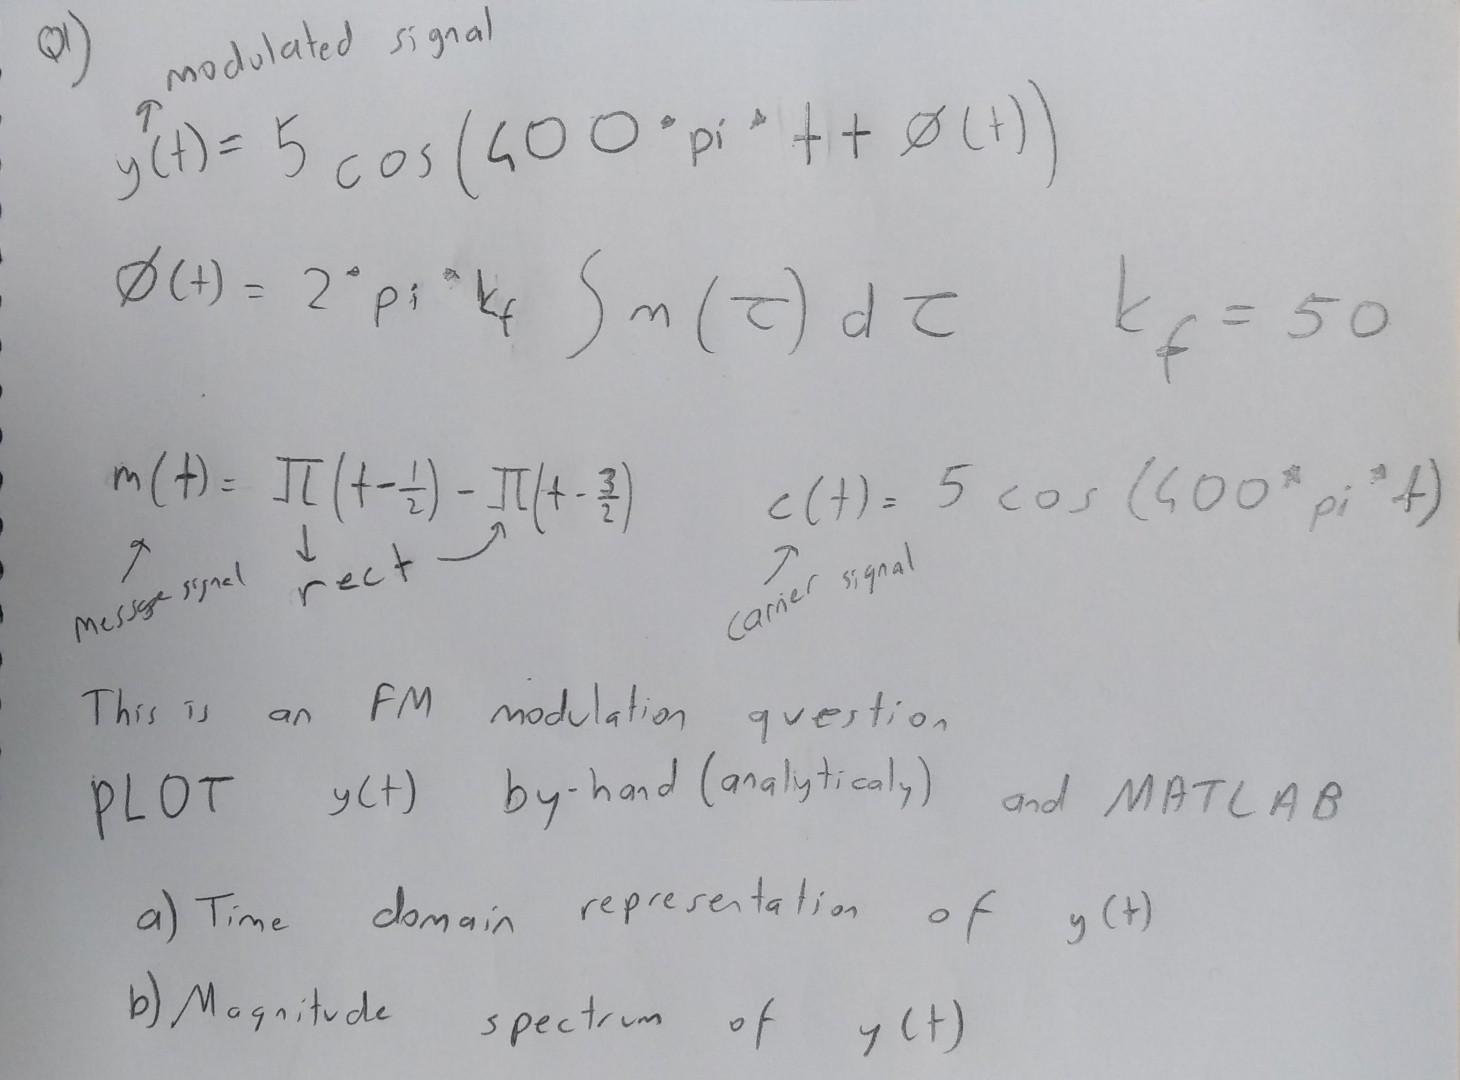 Q1)
modulated signal
y(t) = 5 cos(400*pi*t + Ø(t))
Ø(t) = 2*pi*kf ∫ m(τ) dτ kf = 50
m(t) = Π(t-1/2) - Π(t-3/2) c(t) = 5 cos(400*pi*t)
message signal rect carrier signal
This is an FM modulation question
PLOT y(t) by-hand (analyticaly) and MATLAB
a) Time domain representation of y(t)
b) Magnitude spectrum of y(t)